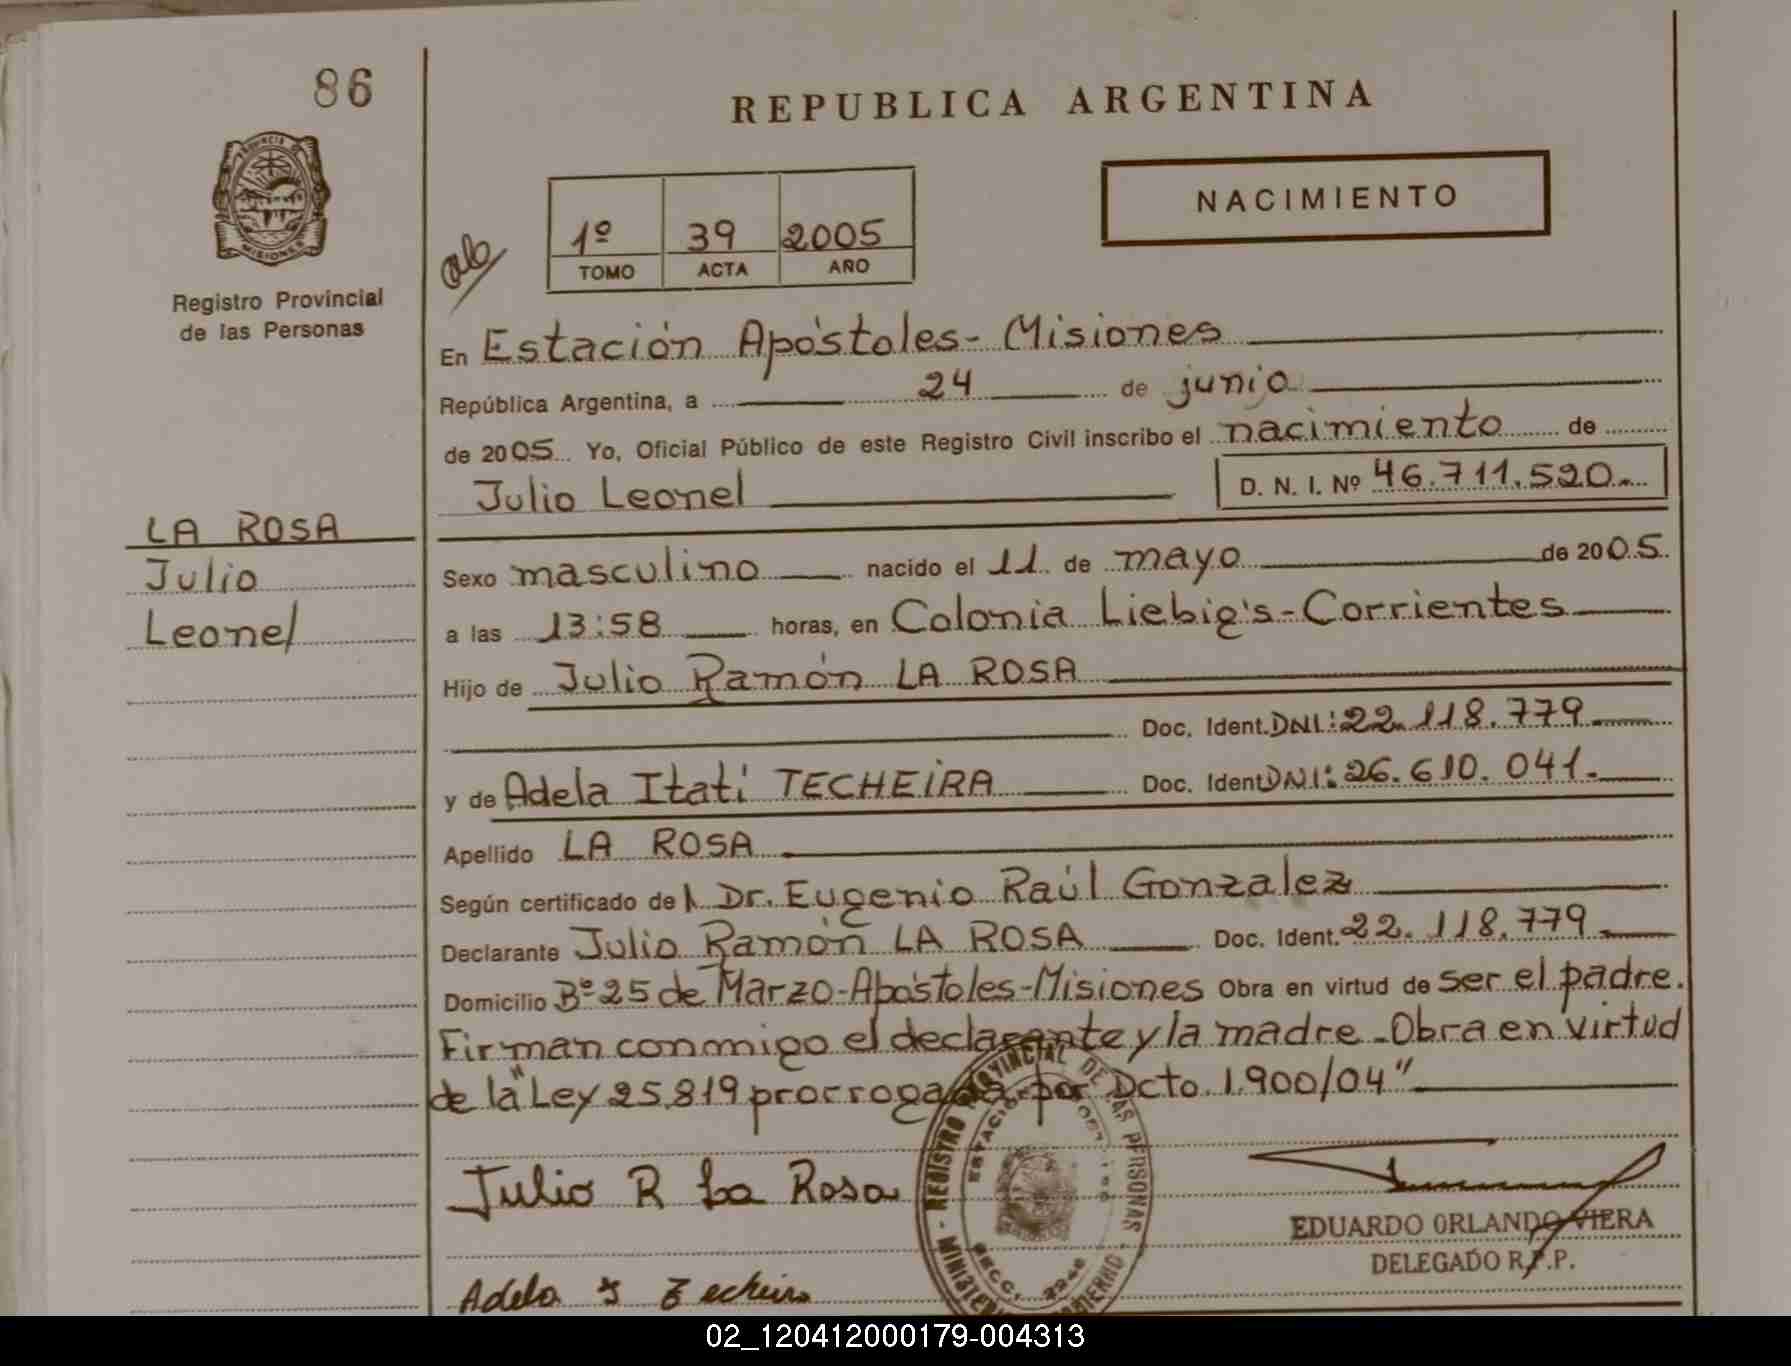 86
REPUBLICA ARGENTINA
PROVINCIA DE
MISIONES
Registro Provincial
de las Personas
NACIMIENTO
1º 39 2005
TOMO ACTA AÑO
En Estación Apóstoles - Misiones
República Argentina, a 24 de junio
de 2005 Yo, Oficial Público de este Registro Civil inscribo el nacimiento de
Julio Leonel D. N. I. Nº 46.711.520.-
LA ROSA
Julio
Leonel
Sexo masculino nacido el 11 de mayo de 2005.
a las 13:58 horas, en Colonia Liebig's - Corrientes
Hijo de Julio Ramón LA ROSA
Doc. Ident. DNI: 22.118.779
y de Adela Itatí TECHEIRA Doc. Ident DNI: 26.610.041.-
Apellido LA ROSA
Según certificado del Dr. Eugenio Raúl Gonzalez
Declarante Julio Ramón LA ROSA Doc. Ident. 22.118.779
Domicilio Bº 25 de Marzo - Apóstoles - Misiones Obra en virtud de ser el padre.
Firman conmigo el declarante y la madre - Obra en virtud
de la "Ley 25.819 prorrogada por Dcto. 1.900/04"
REGISTRO PROVINCIAL DE LAS PERSONAS
Julio R La Rosa
EDUARDO ORLANDO VIERA
DELEGADO R.P.P.
Adela I Techeira
02_120412000179-004313